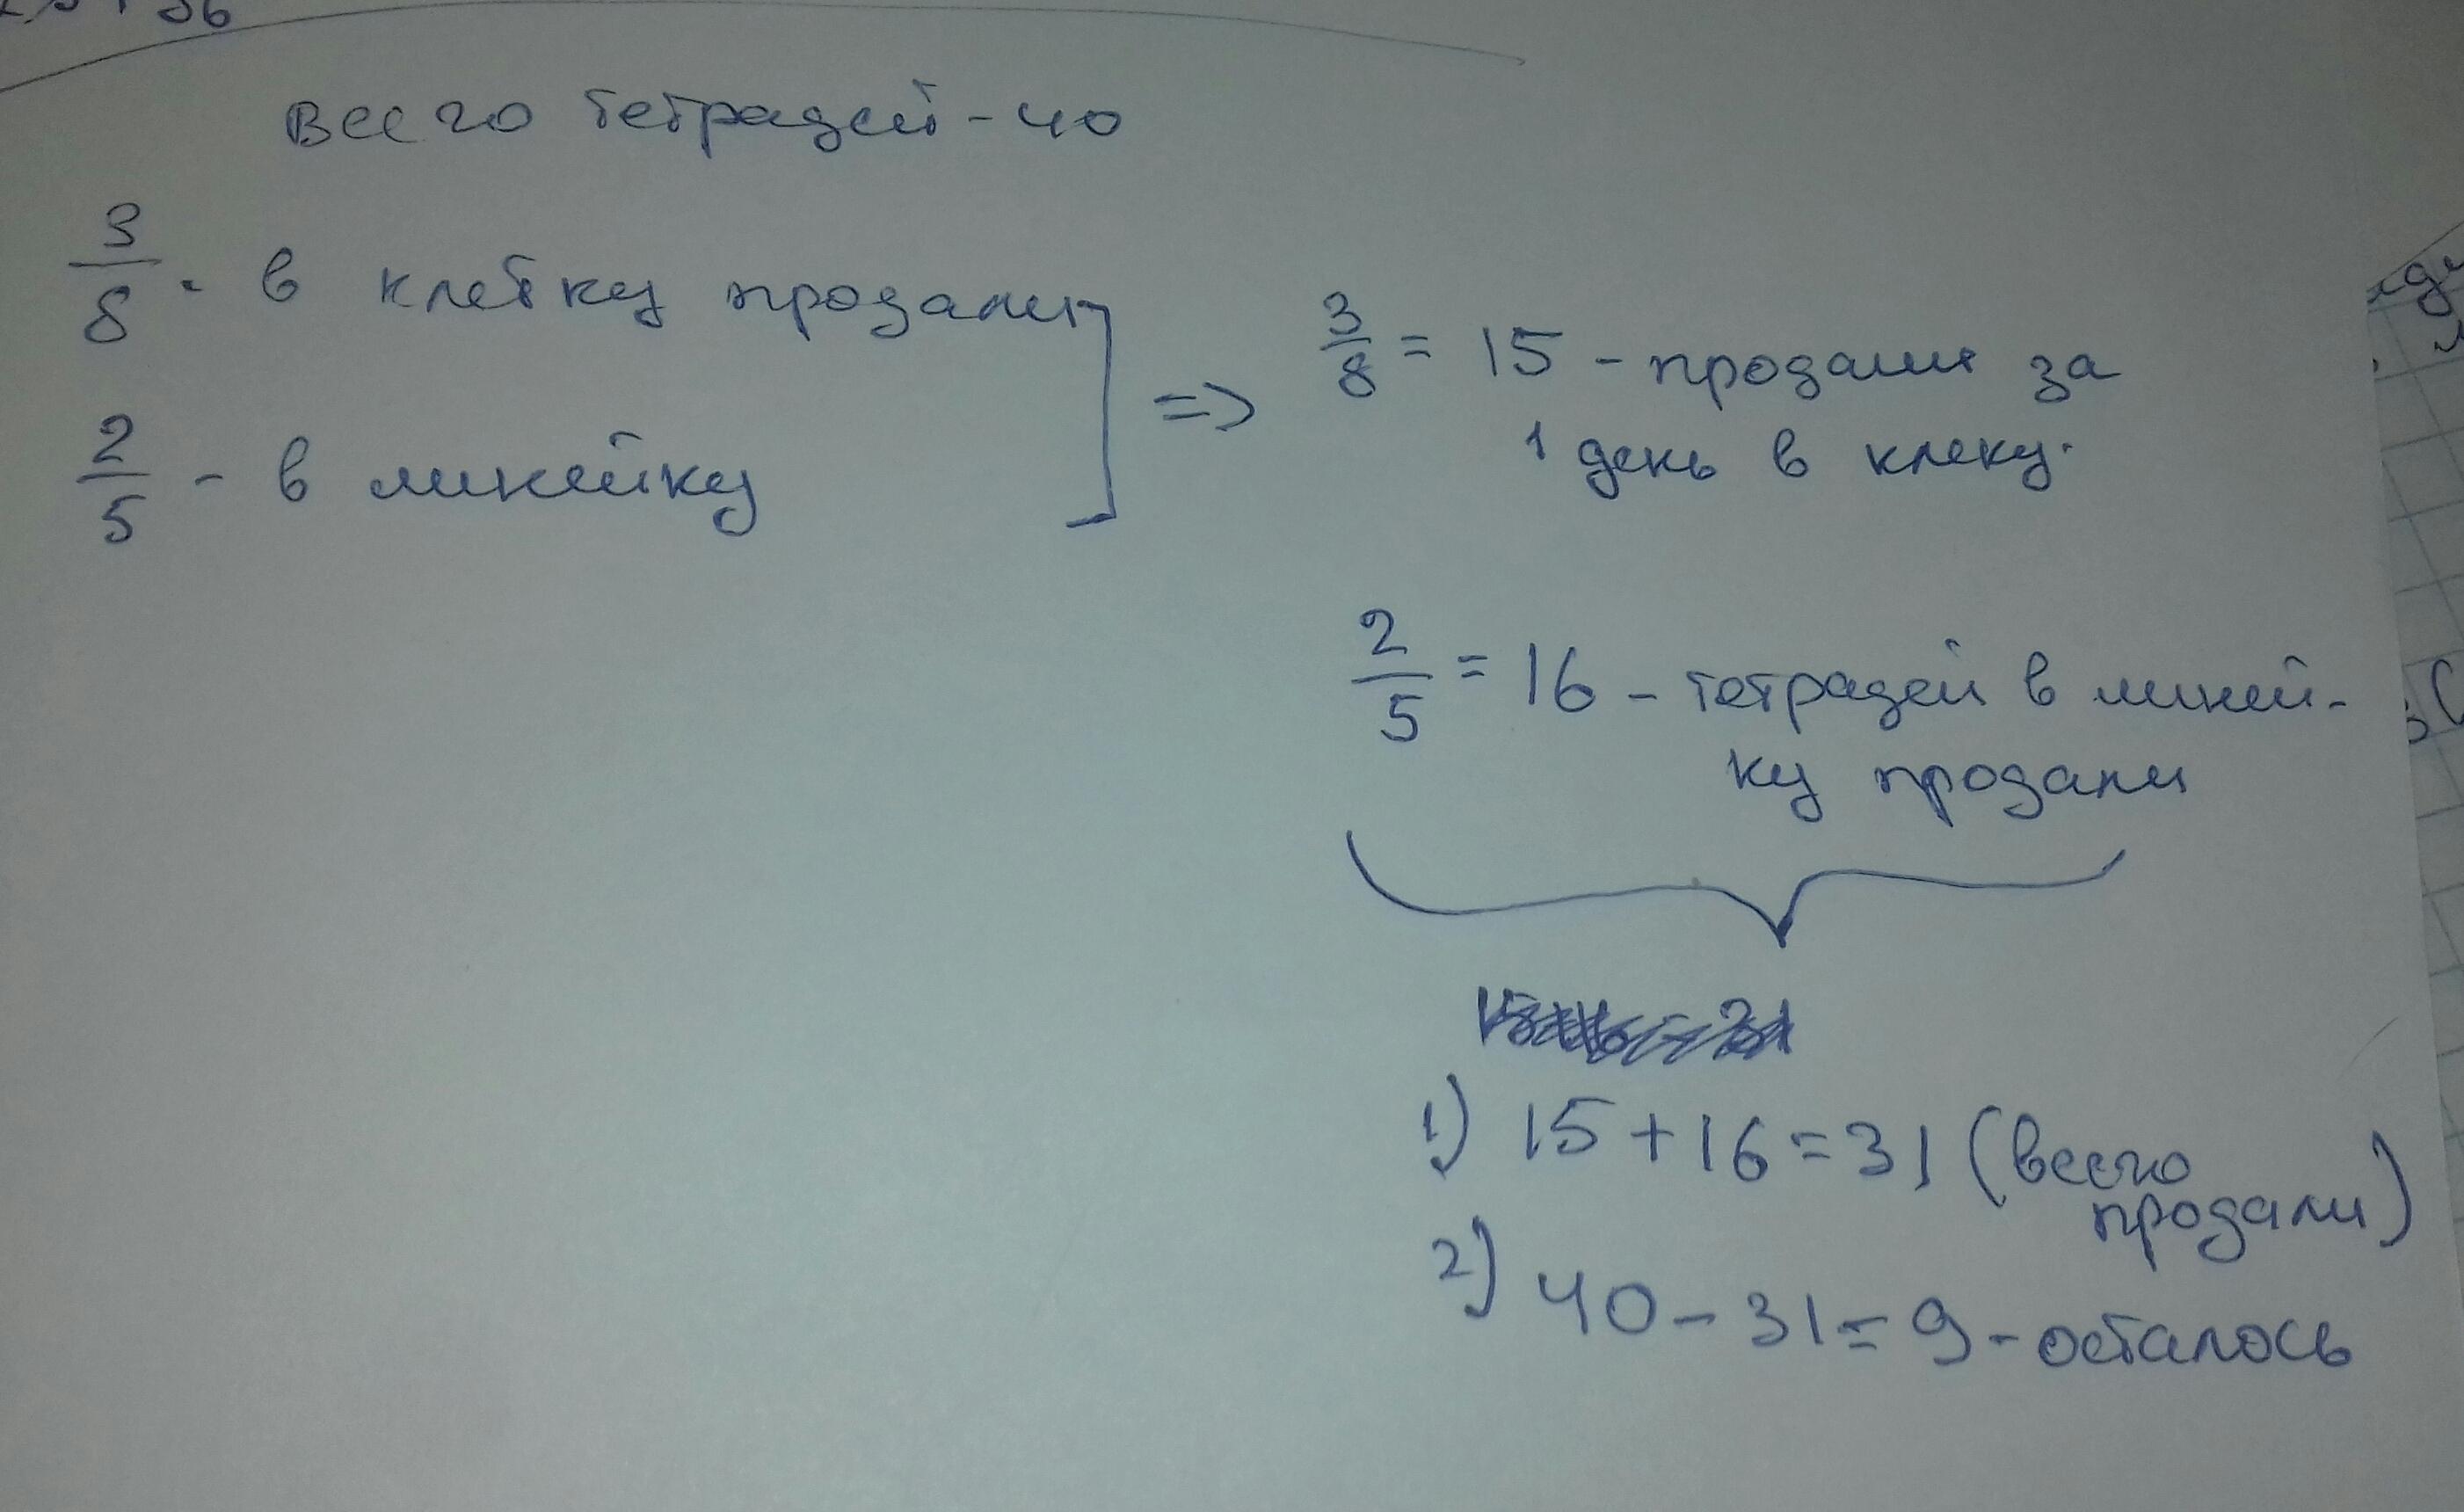 Всего тетрадей - 40
3/8 - в клетку продали
2/5 - в линейку
=> 3/8 = 15 - продали за
1 день в клеку.
2/5 = 16 - тетрадей в линей-
ку продали
1) 15 + 16 = 31 (всего
продали)
2) 40 - 31 = 9 - осталось